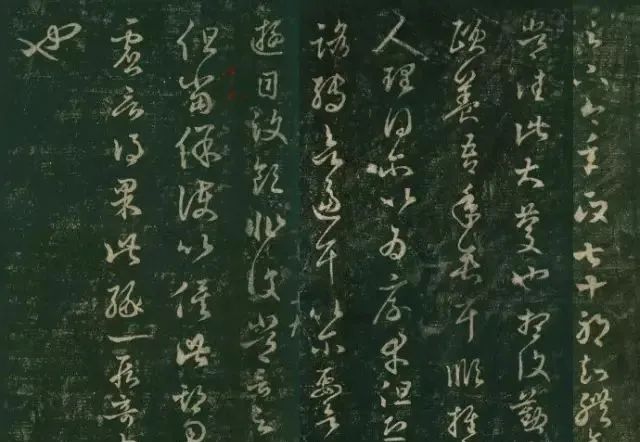 足下今年政七十耶知體氣
常佳此大慶也想復勤
頤養吾年垂耳順推
人理得爾以為厚幸但恐
路轉欲逼耳以爾要欲
遊目汶領非復常言足
但當保護以俟此期勿
虛言得果此緣一段奇事
也